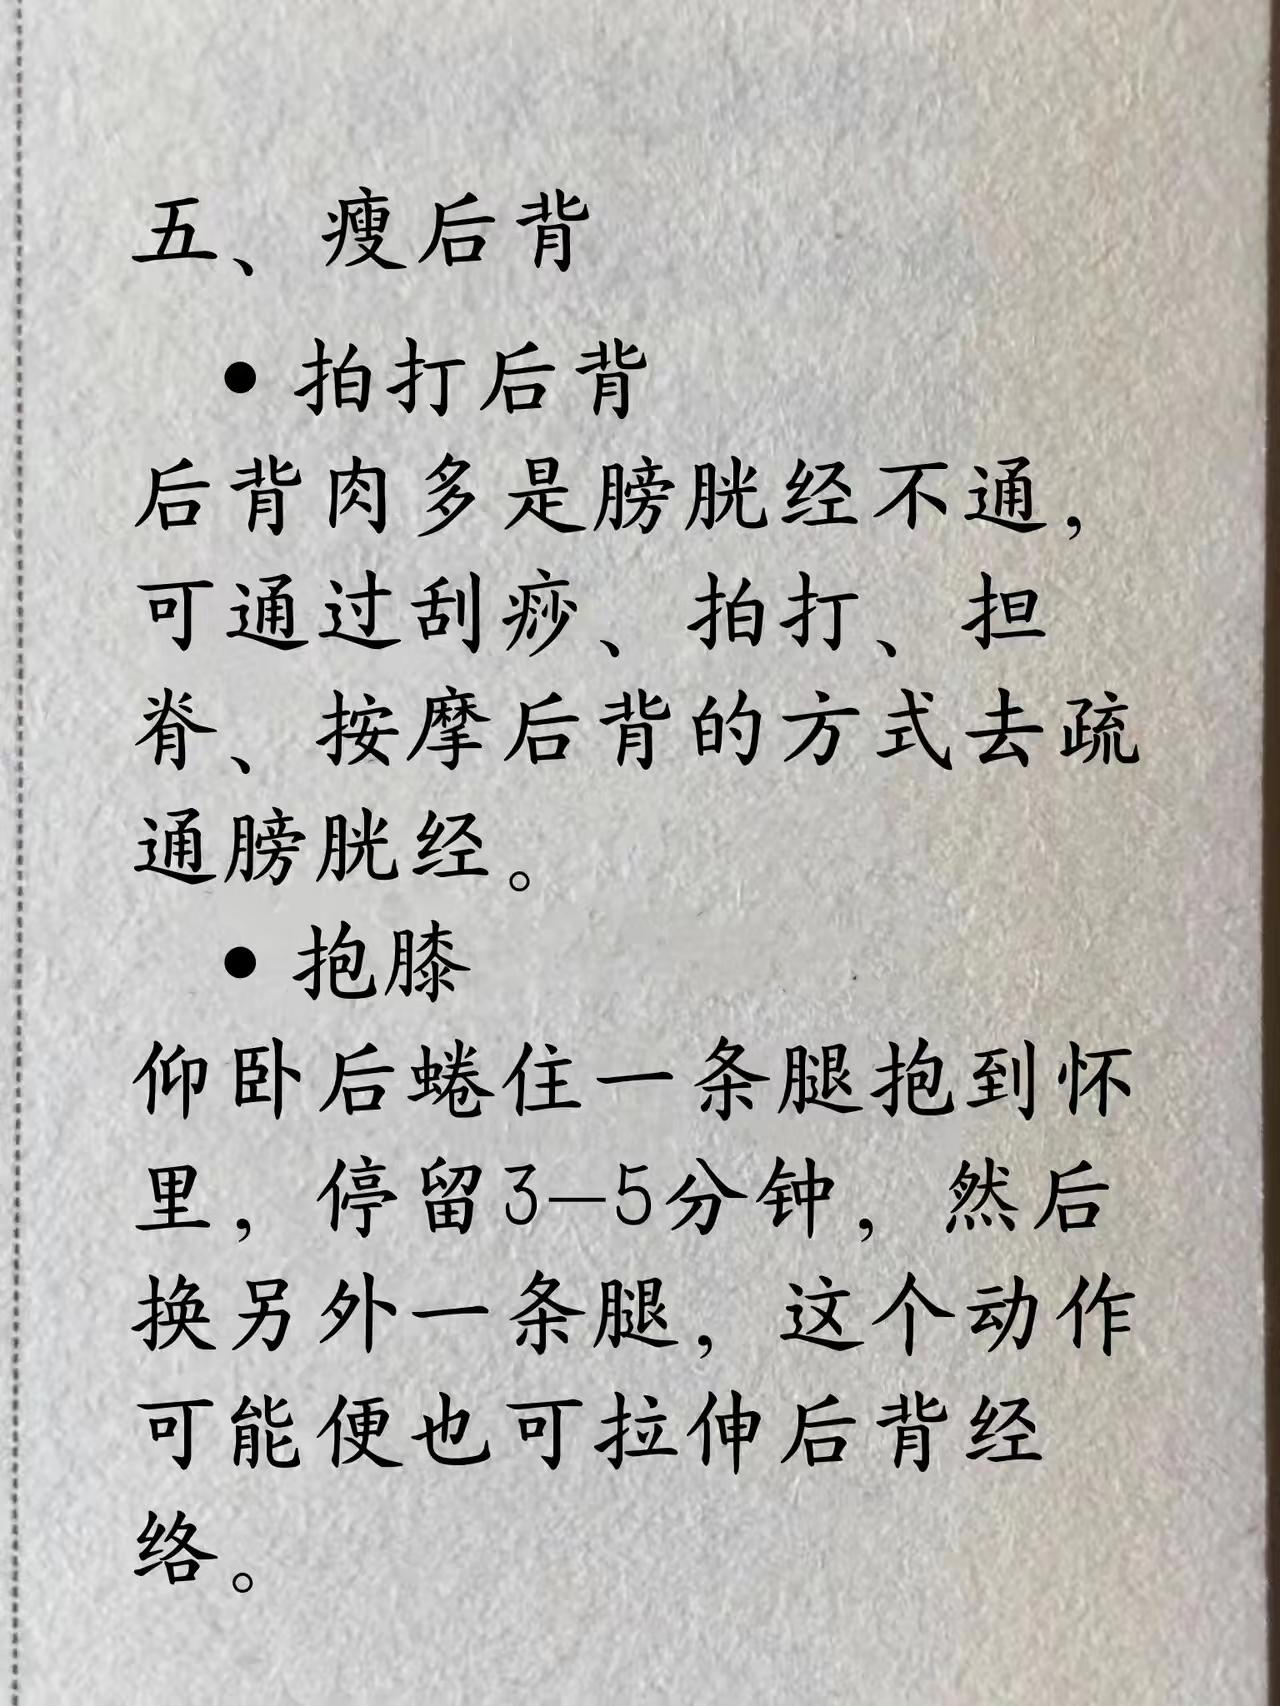 五、瘦后背
• 拍打后背
后背肉多是膀胱经不通，
可通过刮痧、拍打、担
脊、按摩后背的方式去疏
通膀胱经。
• 抱膝
仰卧后蜷住一条腿抱到怀
里，停留3-5分钟，然后
换另外一条腿，这个动作
可能便也可拉伸后背经
络。